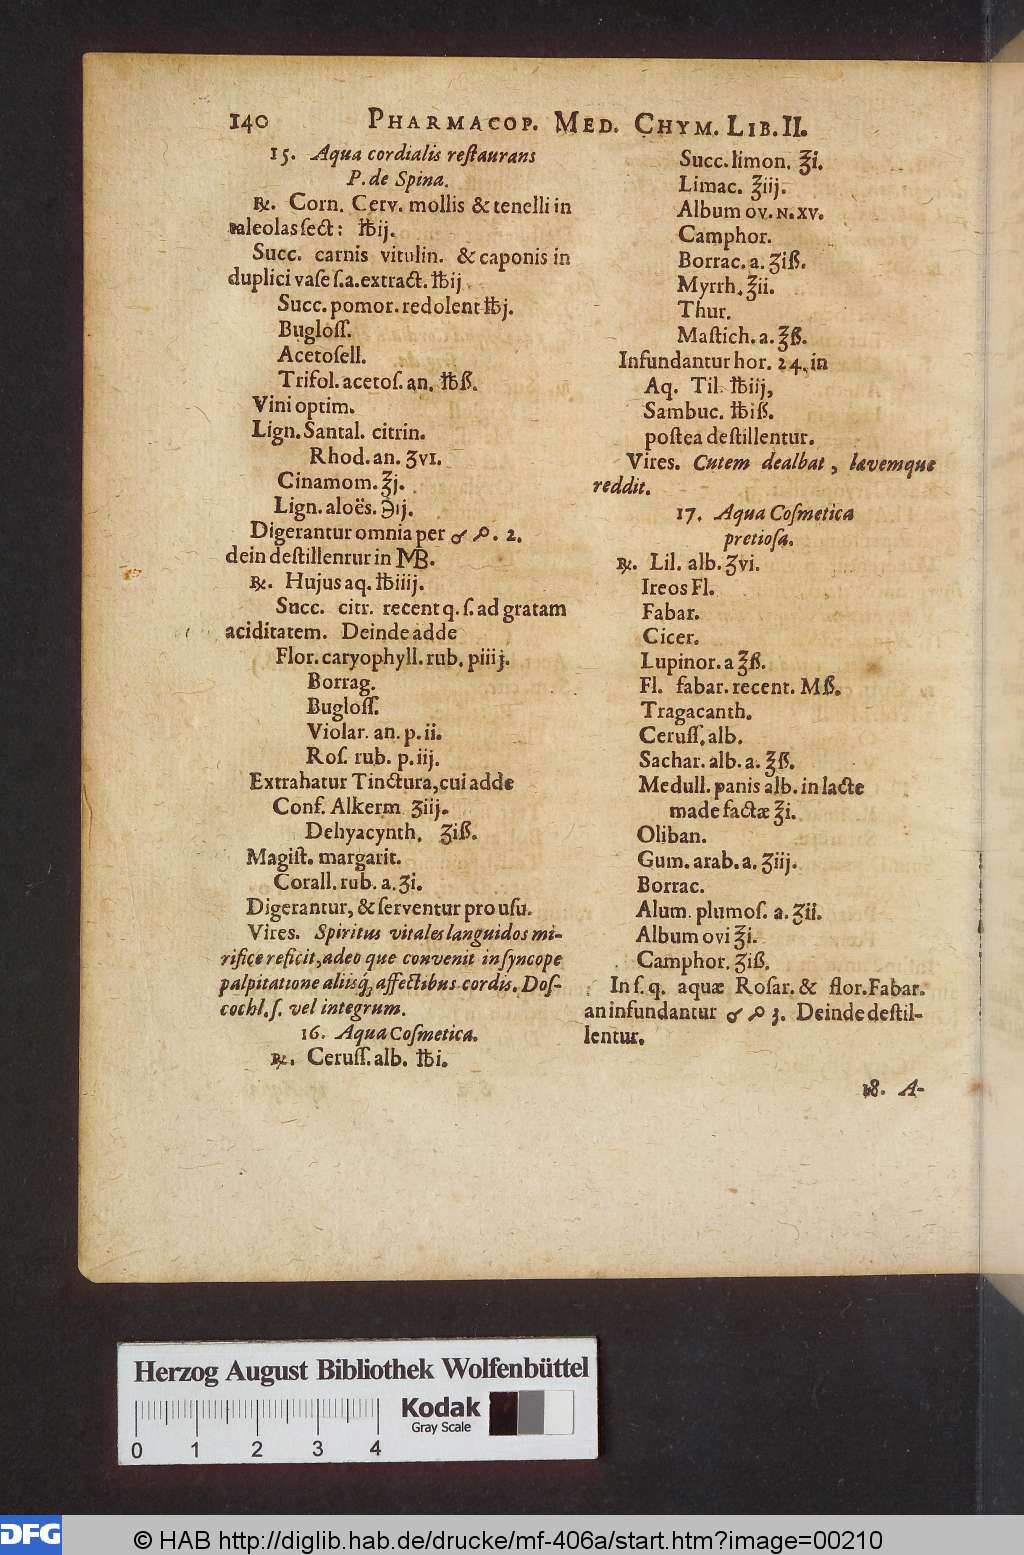 140 PHARMACOP. MED. CHYM. LIB. II.
15. Aqua cordialis reſtaurans
P. de Spina.
℞. Corn. Cerv. mollis & tenelli in
taleolas ſect: ℔ij.
Succ. carnis vitulin. & caponis in
duplici vaſe ſ. a. extract. ℔ij
Succ. pomor. redolent ℔j.
Bugloſſ.
Acetoſell.
Trifol. acetoſ. an. ℔ß.
Vini optim.
Lign. Santal. citrin.
Rhod. an. ʒvi.
Cinamom. ℥j.
Lign. aloës. ℈ij.
Digerantur omnia per ♂ ☍. 2.
dein deſtillentur in MB.
℞. Hujus aq. ℔iiij.
Succ. citr. recent q. ſ. ad gratam
aciditatem. Deinde adde
Flor. caryophyll. rub. piiij.
Borrag.
Bugloſſ.
Violar. an. p. ii.
Roſ. rub. p. iij.
Extrahatur Tinctura, cui adde
Conf. Alkerm ʒiij.
Dehyacynth. ʒiß.
Magiſt. margarit.
Corall. rub. a. ʒi.
Digerantur, & ſerventur pro uſu.
Vires. Spiritus vitales languidos mi-
rifice reficit, adeo que convenit in ſyncope
palpitatione aliisq́; affectibus cordis. Doſ-
cochl. ſ. vel integrum.
16. Aqua Coſmetica.
℞. Ceruſſ. alb. ℔i.
Succ. limon. ℥i.
Limac. ℥iij.
Album ov. N. XV.
Camphor.
Borrac. a. ʒiß.
Myrrh. ℥ii.
Thur.
Maſtich. a. ℥ß.
Infundantur hor. 24. in
Aq. Til. ℔iij,
Sambuc. ℔iß.
poſtea deſtillentur.
Vires. Cutem dealbat, lævemque
reddit.
17. Aqua Coſmetica
pretioſa.
℞. Lil. alb. ʒvi.
Ireos Fl.
Fabar.
Cicer.
Lupinor. a ℥ß.
Fl. fabar. recent. Mß.
Tragacanth.
Ceruſſ. alb.
Sachar. alb. a. ℥ß.
Medull. panis alb. in lacte
madefactæ ℥i.
Oliban.
Gum. arab. a. ʒiij.
Borrac.
Alum. plumoſ. a. ʒii.
Album ovi ℥i.
Camphor. ʒiß.
In ſ. q. aquæ Roſar. & flor. Fabar.
an infundantur ♂ ☍ 3. Deinde deſtil-
lentur.
18. A-
Herzog August Bibliothek Wolfenbüttel
Kodak
Gray Scale
0 1 2 3 4
DFG
© HAB http://diglib.hab.de/drucke/mf-406a/start.htm?image=00210